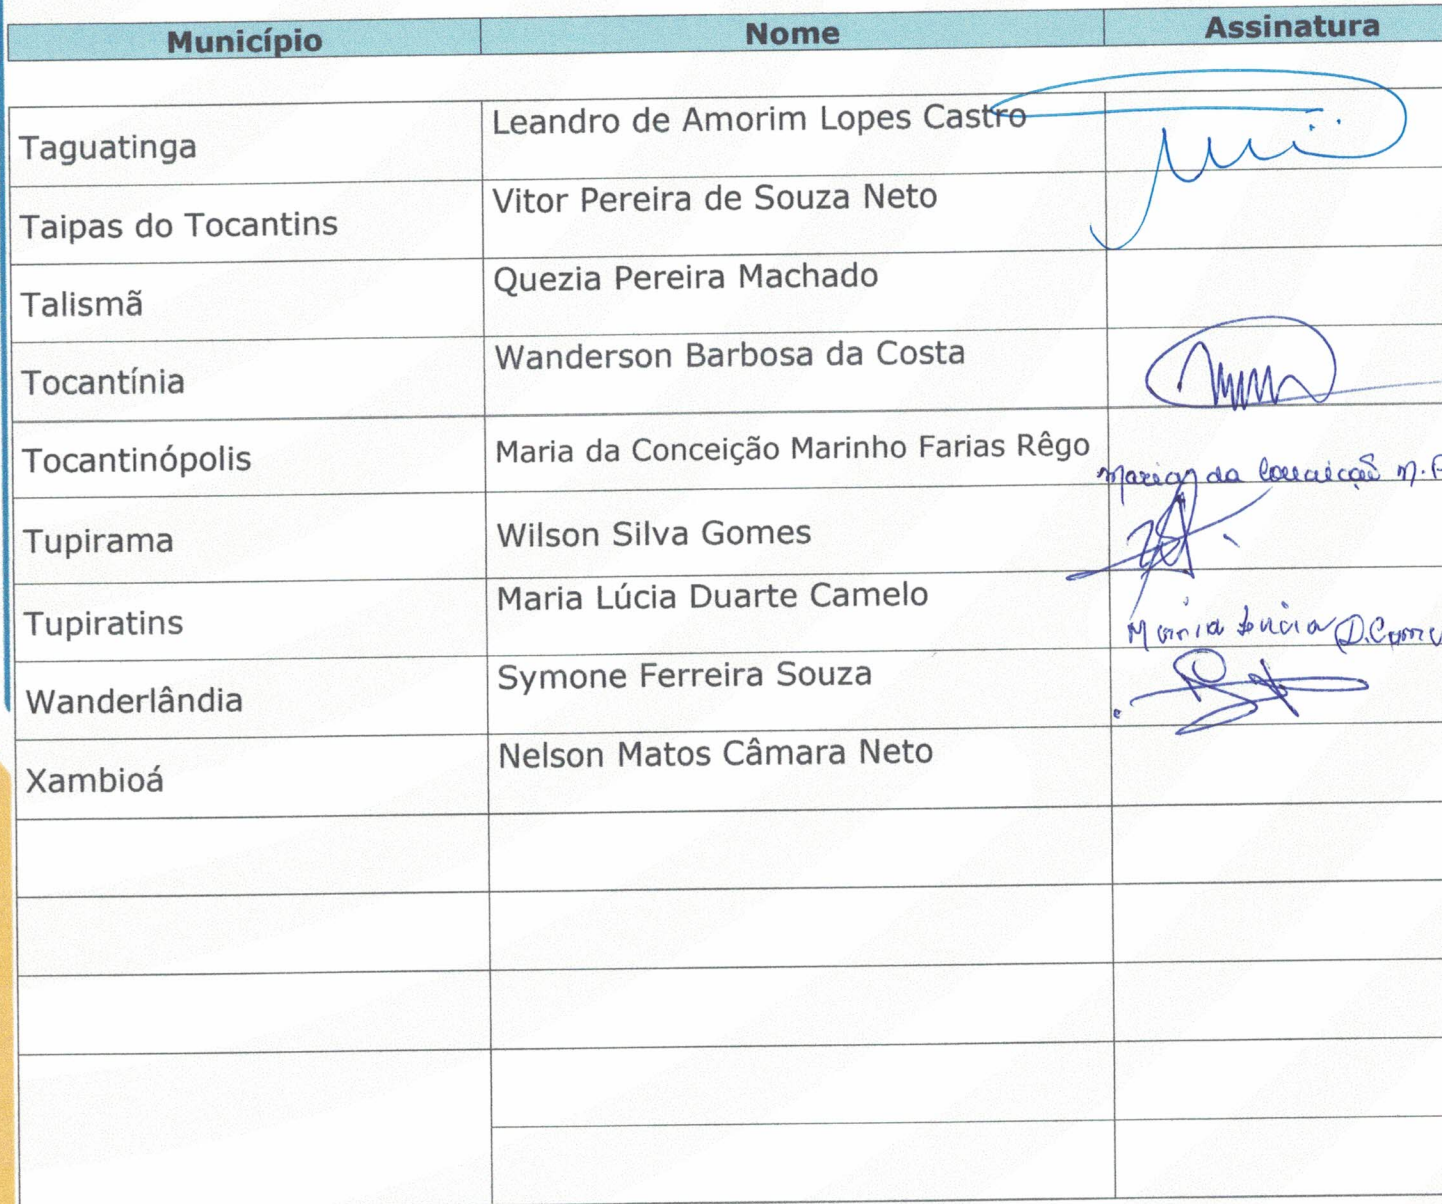 Município Nome Assinatura
Taguatinga Leandro de Amorim Lopes Castro
Taipas do Tocantins Vitor Pereira de Souza Neto
Talismã Quezia Pereira Machado
Tocantínia Wanderson Barbosa da Costa
Tocantinópolis Maria da Conceição Marinho Farias Rêgo Maria da Conceição M. F
Tupirama Wilson Silva Gomes
Tupiratins Maria Lúcia Duarte Camelo Maria Lucia D. Came
Wanderlândia Symone Ferreira Souza
Xambioá Nelson Matos Câmara Neto